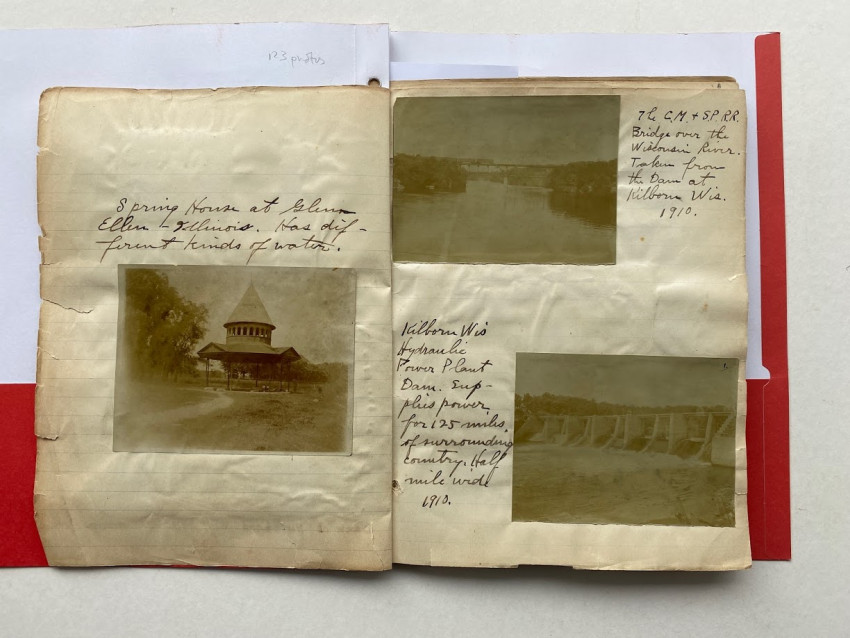 123 photos
Spring House at Glenn
Ellen - Illinois. Has dif-
ferent kinds of water.
The C.M. & S.P. RR.
Bridge over the
Wisconsin River.
Taken from
the Dam at
Kilborn Wis.
1910.
Kilborn Wis
Hydraulic
Power Plant
Dam. Sup-
plies power
for 125 miles.
of surrounding
country. Half
mile wide
1910.